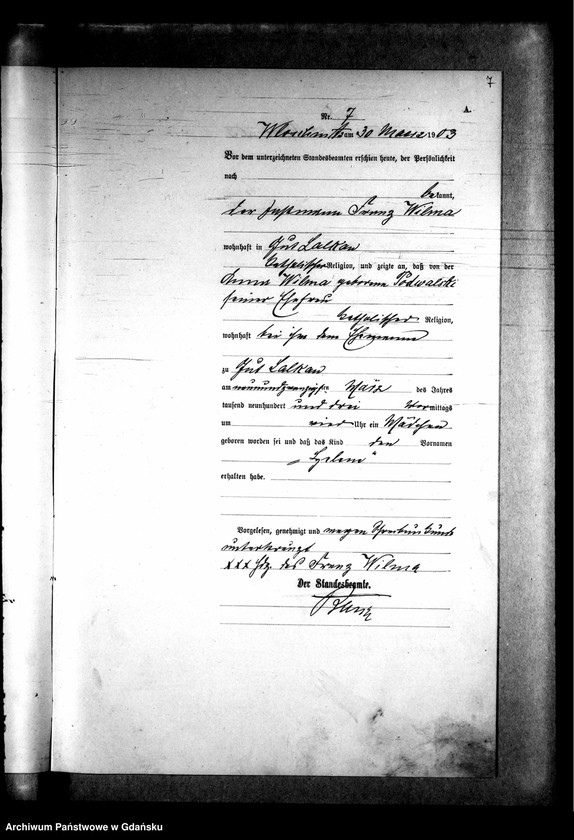 7
A.
Nr. 7
am 30 März 1903
Vor dem unterzeichneten Standesbeamten erschien heute, der Persönlichkeit
nach
bekannt,
der Instmann Franz Wilma
wohnhaft in Gut Lalkau
katholischer Religion, und zeigte an, daß von der
Anna Wilma geborene Podwalski
seiner Ehefrau
katholischer Religion,
wohnhaft bei ihm dem Ehemanne
zu Gut Lalkau
am neunundzwanzigsten März des Jahres
tausend neunhundert und drei Vormittags
um vier Uhr ein Mädchen
geboren worden sei und daß das Kind den Vornamen
"Helene"
erhalten habe.
Vorgelesen, genehmigt und wegen Schreibunkunde
unterkreuzt
xxx Hdz. des Franz Wilma
Der Standesbeamte.
Archiwum Państwowe w Gdańsku